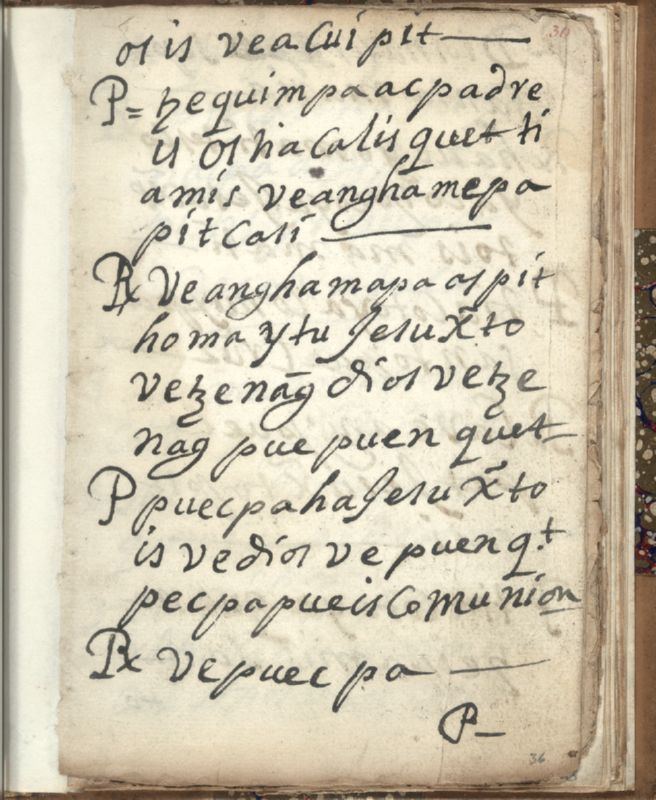 30
os is vea Cui pit —
P = ꜩe quim pa ac padre
is os ha Calis quet ti
amis veanghamepa
pit Cali —
R Veanghamapa os pit
homa y tu Jesu x̃to
veꜩe nãg dios veꜩe
nãg pue puen quet
P puec pa ha Jesu x̃to
is ve dios ve puen q.t
pec pa pueis Comunion
R Ve puec pa —
P —
36